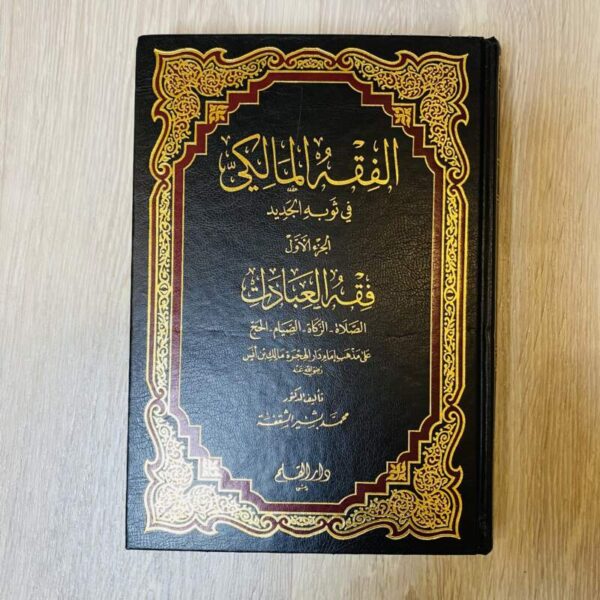 الفِقْهُ المَالِكِيُّ
في ثَوبِهِ الجَدِيد
الجُزءُ الأوَّلُ
فِقْهُ العِبَادَات
الصَّلَاة - الزَّكَاة - الصِّيَام - الحَجّ
عَلى مَذْهَبِ إِمَامِ دَارِ الهِجْرَة مَالِك بن أنَس
رَضِيَ اللهُ عَنْهُ
تأليف الدكتور
محمد بشير الشقفة
دار القلم
دمشق